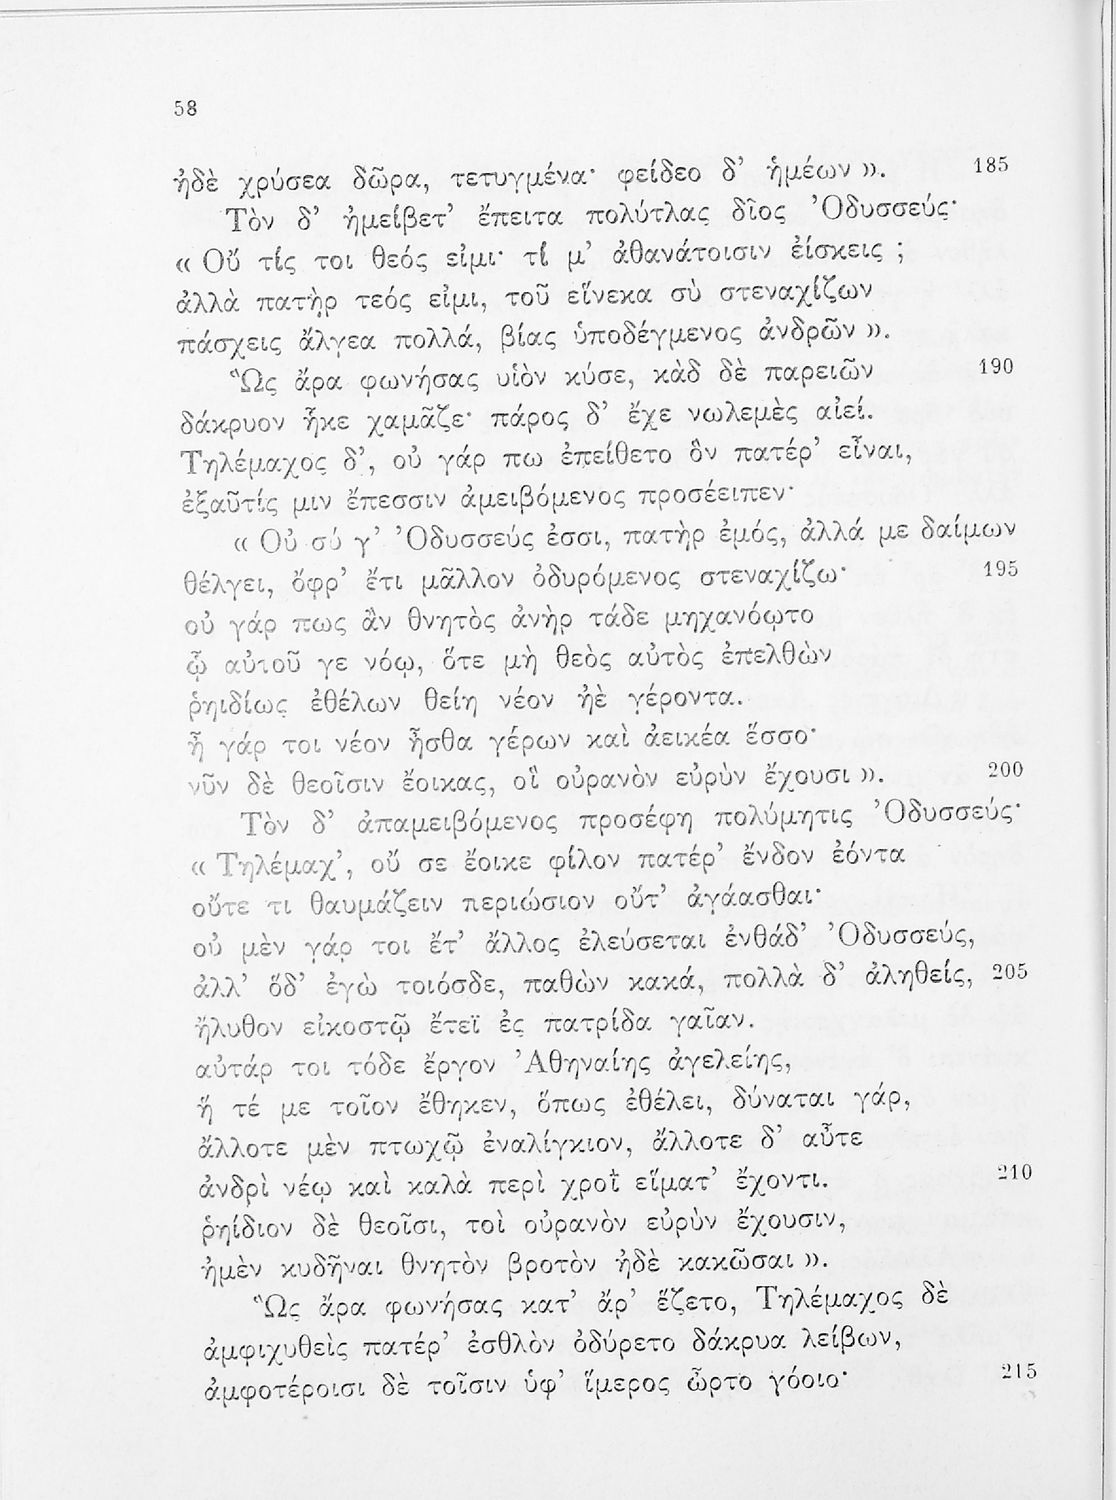 58
ἠδὲ χρύσεα δῶρα, τετυγμένα· φείδεο δ’ ἡμέων ». 185
Τὸν δ’ ἠμείβετ’ ἔπειτα πολύτλας δῖος Ὀδυσσεύς·
« Οὔ τίς τοι θεός εἰμι· τί μ’ ἀθανάτοισιν ἐίσκεις ;
ἀλλὰ πατὴρ τεός εἰμι, τοῦ εἵνεκα σὺ στεναχίζων
πάσχεις ἄλγεα πολλά, βίας ὑποδέγμενος ἀνδρῶν ».
Ὣς ἄρα φωνήσας υἱὸν κύσε, κὰδ δὲ παρειῶν 190
δάκρυον ἧκε χαμᾶζε· πάρος δ’ ἔχε νωλεμὲς αἰεί.
Τηλέμαχος δ’, οὐ γάρ πω ἐπείθετο ὃν πατέρ’ εἶναι,
ἐξαῦτίς μιν ἔπεσσιν ἀμειβόμενος προσέειπεν·
« Οὐ σύ γ’ Ὀδυσσεύς ἐσσι, πατὴρ ἐμός, ἀλλά με δαίμων
θέλγει, ὄφρ’ ἔτι μᾶλλον ὀδυρόμενος στεναχίζω· 195
οὐ γάρ πως ἂν θνητὸς ἀνὴρ τάδε μηχανόῳτο
ᾧ αὐτοῦ γε νόῳ, ὅτε μὴ θεὸς αὐτὸς ἐπελθὼν
ῥηιδίως ἐθέλων θείη νέον ἠὲ γέροντα.
ἦ γάρ τοι νέον ἦσθα γέρων καὶ ἀεικέα ἕσσο·
νῦν δὲ θεοῖσιν ἔοικας, οἳ οὐρανὸν εὐρὺν ἔχουσι ». 200
Τὸν δ’ ἀπαμειβόμενος προσέφη πολύμητις Ὀδυσσεύς·
« Τηλέμαχ’, οὔ σε ἔοικε φίλον πατέρ’ ἔνδον ἐόντα
οὔτε τι θαυμάζειν περιώσιον οὔτ’ ἀγάασθαι·
οὐ μὲν γάρ τοι ἔτ’ ἄλλος ἐλεύσεται ἐνθάδ’ Ὀδυσσεύς,
ἀλλ’ ὅδ’ ἐγὼ τοιόσδε, παθὼν κακά, πολλὰ δ’ ἀληθείς, 205
ἤλυθον εἰκοστῷ ἔτεϊ ἐς πατρίδα γαῖαν.
αὐτάρ τοι τόδε ἔργον Ἀθηναίης ἀγελείης,
ἥ τέ με τοῖον ἔθηκεν, ὅπως ἐθέλει, δύναται γάρ,
ἄλλοτε μὲν πτωχῷ ἐναλίγκιον, ἄλλοτε δ’ αὖτε
ἀνδρὶ νέῳ καὶ καλὰ περὶ χροῒ εἵματ’ ἔχοντι. 210
ῥηίδιον δὲ θεοῖσι, τοὶ οὐρανὸν εὐρὺν ἔχουσιν,
ἠμὲν κυδῆναι θνητὸν βροτὸν ἠδὲ κακῶσαι ».
Ὣς ἄρα φωνήσας κατ’ ἄρ’ ἕζετο, Τηλέμαχος δὲ
ἀμφιχυθεὶς πατέρ’ ἐσθλὸν ὀδύρετο δάκρυα λείβων,
ἀμφοτέροισι δὲ τοῖσιν ὑφ’ ἵμερος ὦρτο γόοιο· 215